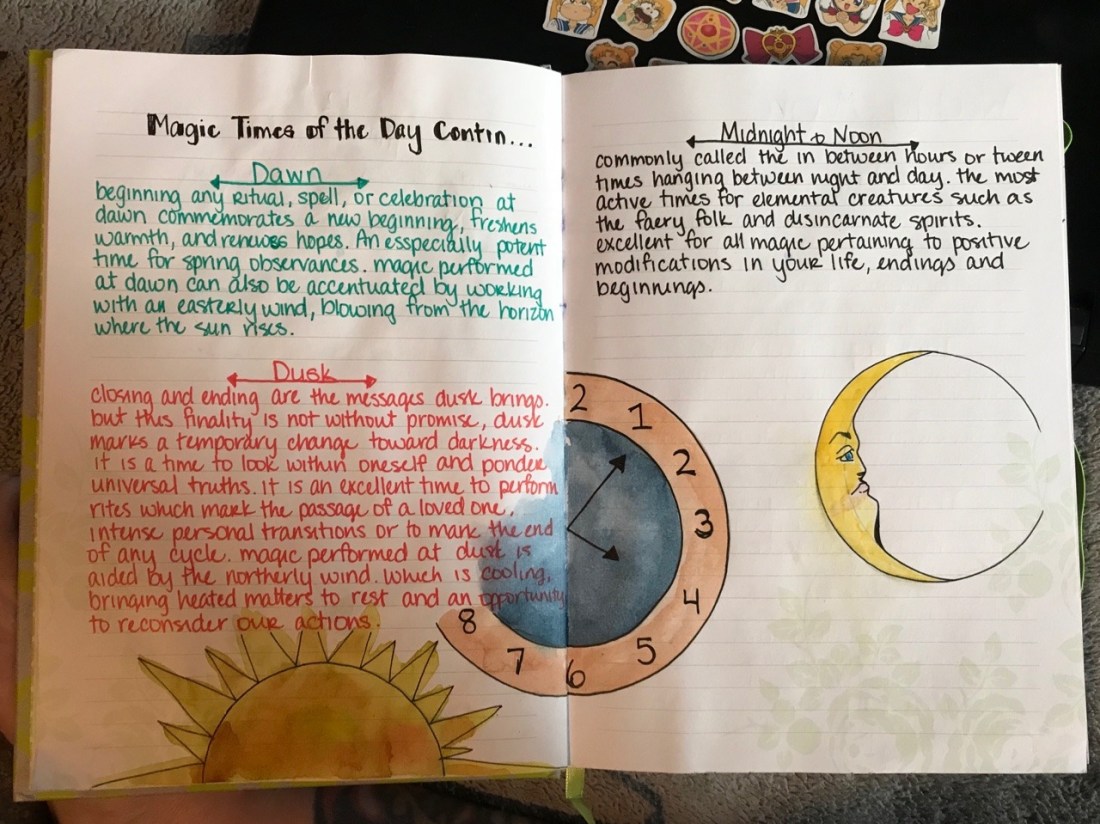 Magic Times of the Day Contin...
Dawn
beginning any ritual, spell, or celebration at
dawn commemorates a new beginning, freshens
warmth, and renewes hopes. An esspecially potent
time for spring observances. magic performed
at dawn can also be accentuated by working
with an easterly wind, blowing from the horizon
where the sun rises.
Dusk
closing and ending are the messages dusk brings.
but this finality is not without promise, dusk
marks a temporary change toward darkness.
it is a time to look within oneself and ponder
universal truths. it is an excellent time to perform
rites which mark the passage of a loved one,
intense personal transitions or to mark the end
of any cycle. magic performed at dusk is
aided by the northerly wind. which is cooling,
bringing heated matters to rest and an opportunity
to reconsider our actions.
Midnight & Noon
commonly called the in between hours or tween
times hanging between night and day. the most
active times for elemental creatures such as
the faery folk and disincarnate spirits.
excellent for all magic pertaining to positive
modifications in your life, endings and
beginnings.
2
1
2
3
4
5
6
7
8